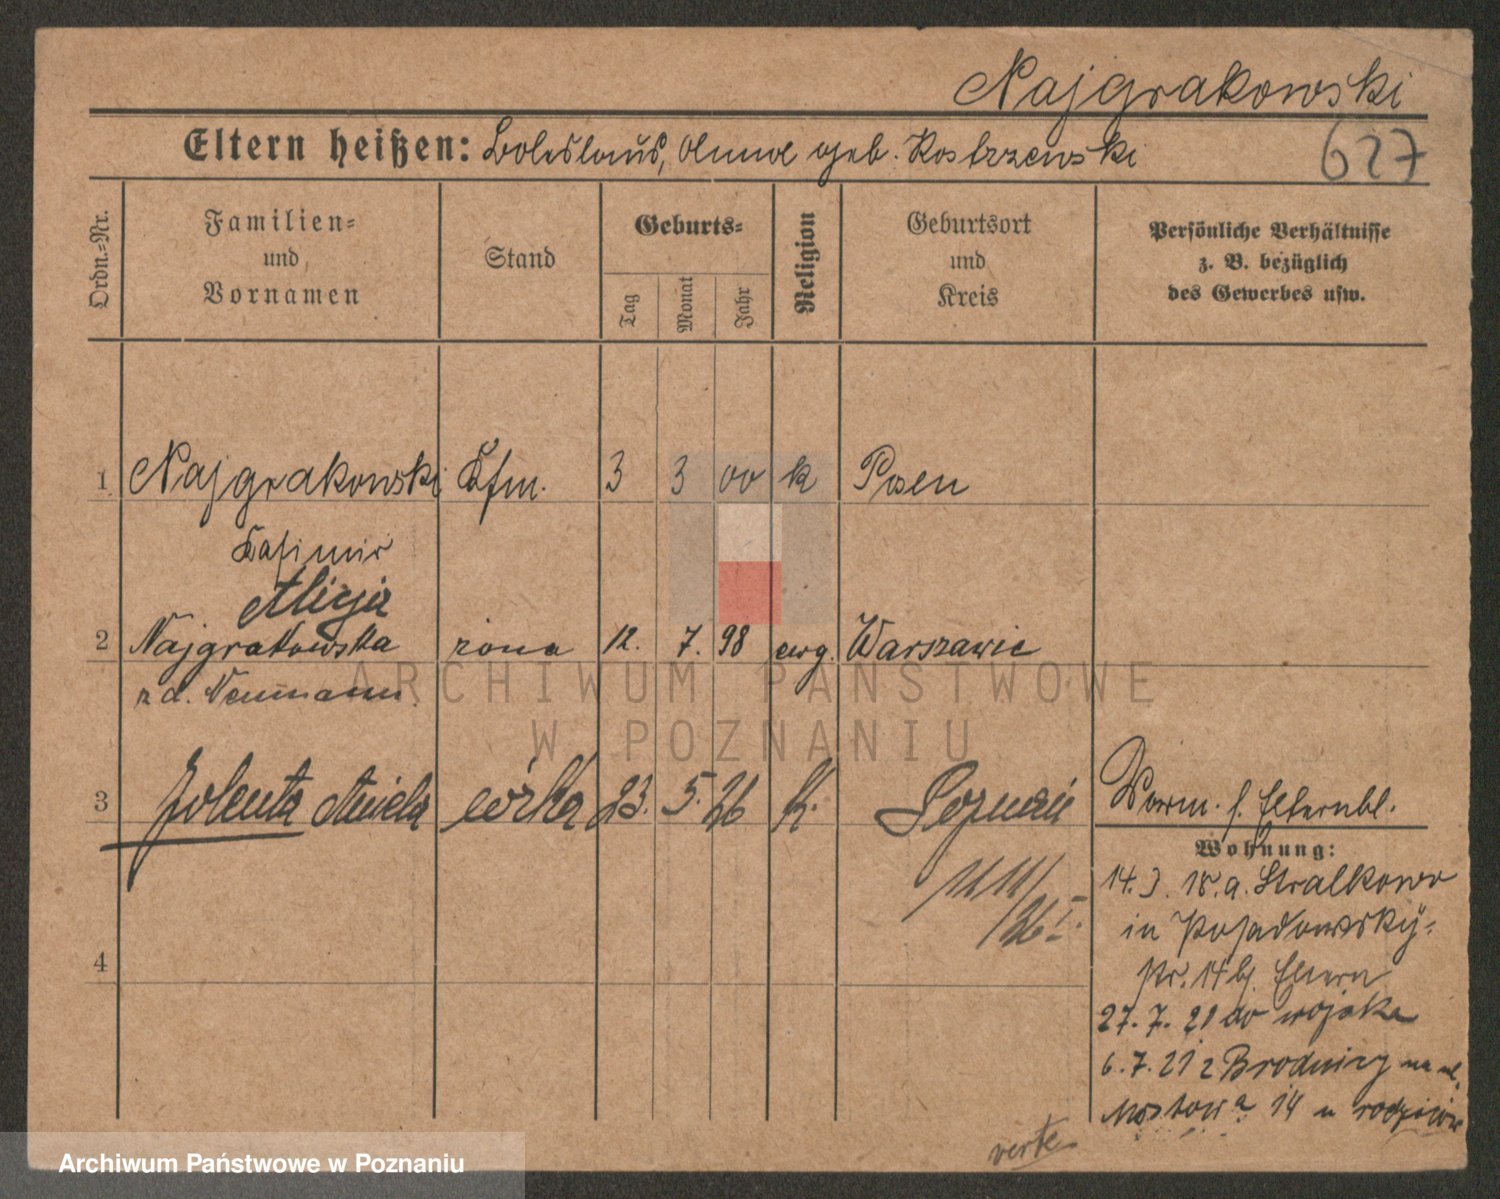 Najgrakowski
627
Eltern heißen: Boleslaus, Anna geb. Kostrzewski
Ordn.-Nr.
Familien- und Vornamen
Stand
Geburts-
Tag
Monat
Jahr
Religion
Geburtsort und Kreis
Persönliche Verhältnisse z. B. bezüglich des Gewerbes usw.
1 Najgrakowski Kfm. 3 3 00 k Posen
Kasimir
Alicja
2 Najgrakowska żona 12. 7. 98 ewg. Warszawie
z d. Neumann.
3 Jolenta Aniela córka 23. 5. 26 k. Poznań
Vorm. s. Elternbl.
Wohnung:
14.3.18. a. Stralkowo
in Posadowsky-
str. 14 b. Eltern
27. 7. 20 do wojska
6. 7. 21 z Brodnicy na ul.
Mostowa 14 u rodziców
4
verte
ARCHIWUM PAŃSTWOWE
W POZNANIU
Archiwum Państwowe w Poznaniu